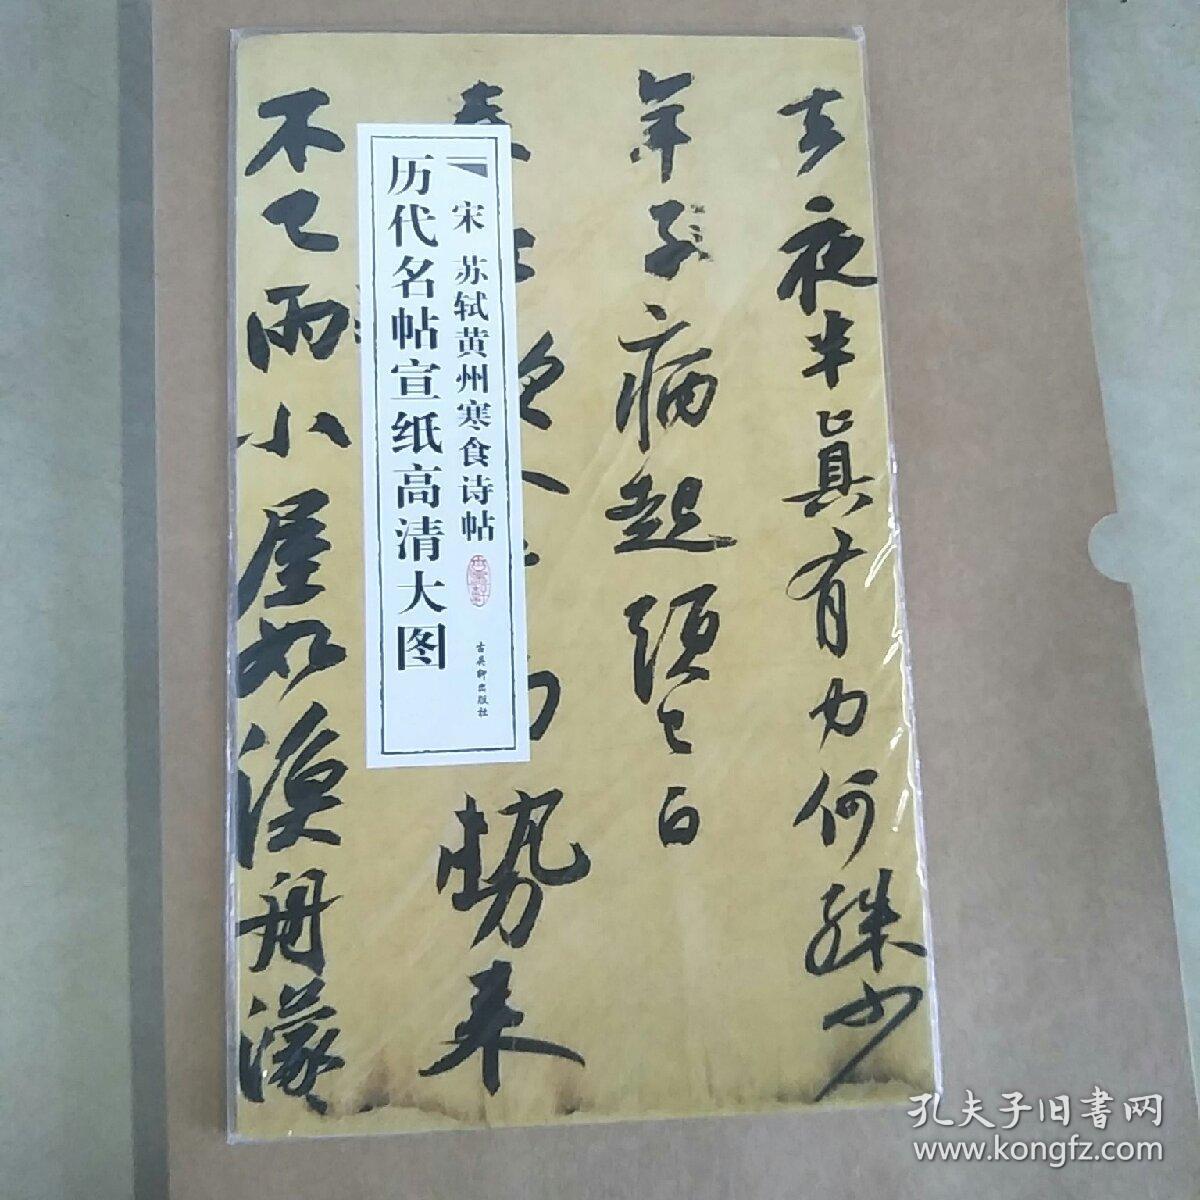 去夜半真有力何殊少
年子病起頭已白
勢来
不已雨小屋如漁舟濛
宋 苏轼黄州寒食诗帖
古吴轩出版社
历代名帖宣纸高清大图
孔夫子旧書网
www.kongfz.com